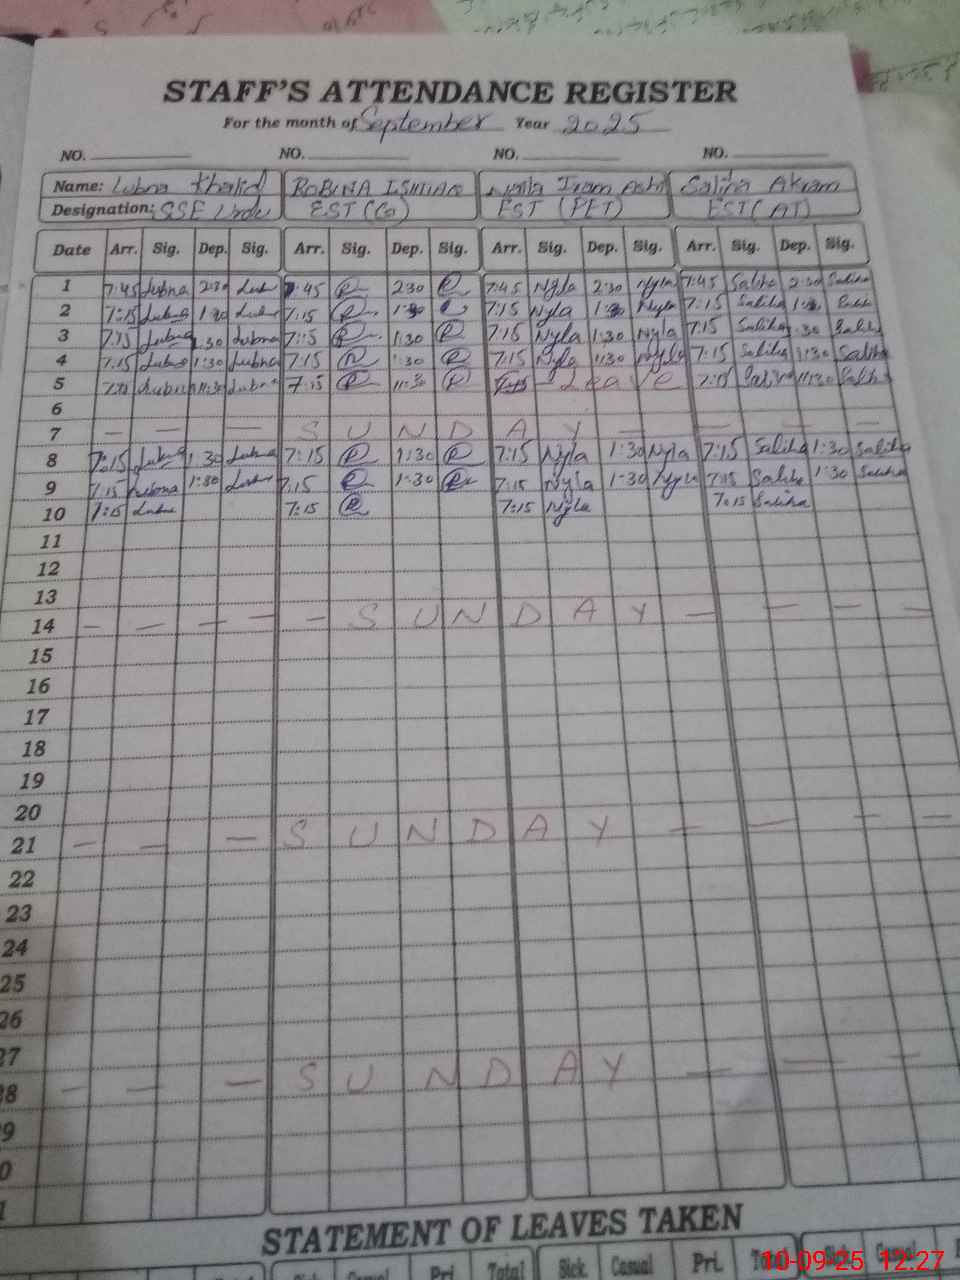 STAFF'S ATTENDANCE REGISTER
For the month of September Year 2025
NO. NO. NO. NO.
Name: Lubna Khalid ROBINA ISHTIAQ Iram Saliha Akram
Designation: SSE Urdu EST (PET) EST (AT)
Date Arr. Sig. Dep. Sig. Arr. Sig. Dep. Sig. Arr. Sig. Dep. Sig. Arr. Sig. Dep. Sig.
1 7:45 Lubna 2:30 Lub 7:45 2:30 7:45 Nyla 2:30 Nyla 7:45 Saliha 2:30 Saliha
2 7:15 Lubna 1:30 Lub 7:15 1:30 7:15 Nyla 1:30 Nyla 7:15 Saliha
3 7:15 Lubna 1:30 Lubna 7:15 1:30 7:15 Nyla 1:30 Nyla 7:15 Saliha 1:30 Saliha
4 7:15 Lubna 1:30 Lubna 7:15 1:30 7:15 Nyla 1:30 Nyla 7:15 Saliha 1:30 Saliha
5 Lubna 11:30 Lubna 7:15 11:30 7:15 - Leave 7:15 Saliha 11:30 Saliha
6
7 - - - S U N D A Y - - - -
8 7:15 Lubna 1:30 Lubna 7:15 1:30 7:15 Nyla 1:30 Nyla 7:15 Saliha 1:30 Saliha
9 7:15 Lubna 1:30 Lubna 7:15 1:30 7:15 Nyla 1:30 Nyla 7:15 Saliha 1:30 Saliha
10 7:15 Lubna 7:15 7:15 Nyla 7:15 Saliha
11
12
13
14 - - - - - S U N D A Y - - - -
15
16
17
18
19
20
21 - - - S U N D A Y - - - -
22
23
24
25
26
27
28 - - - S U N D A Y - - -
9
0
1
STATEMENT OF LEAVES TAKEN
Sick Casual Pri. Total Sick Casual Pri. Total Sick Casual
10-09-25 12:27